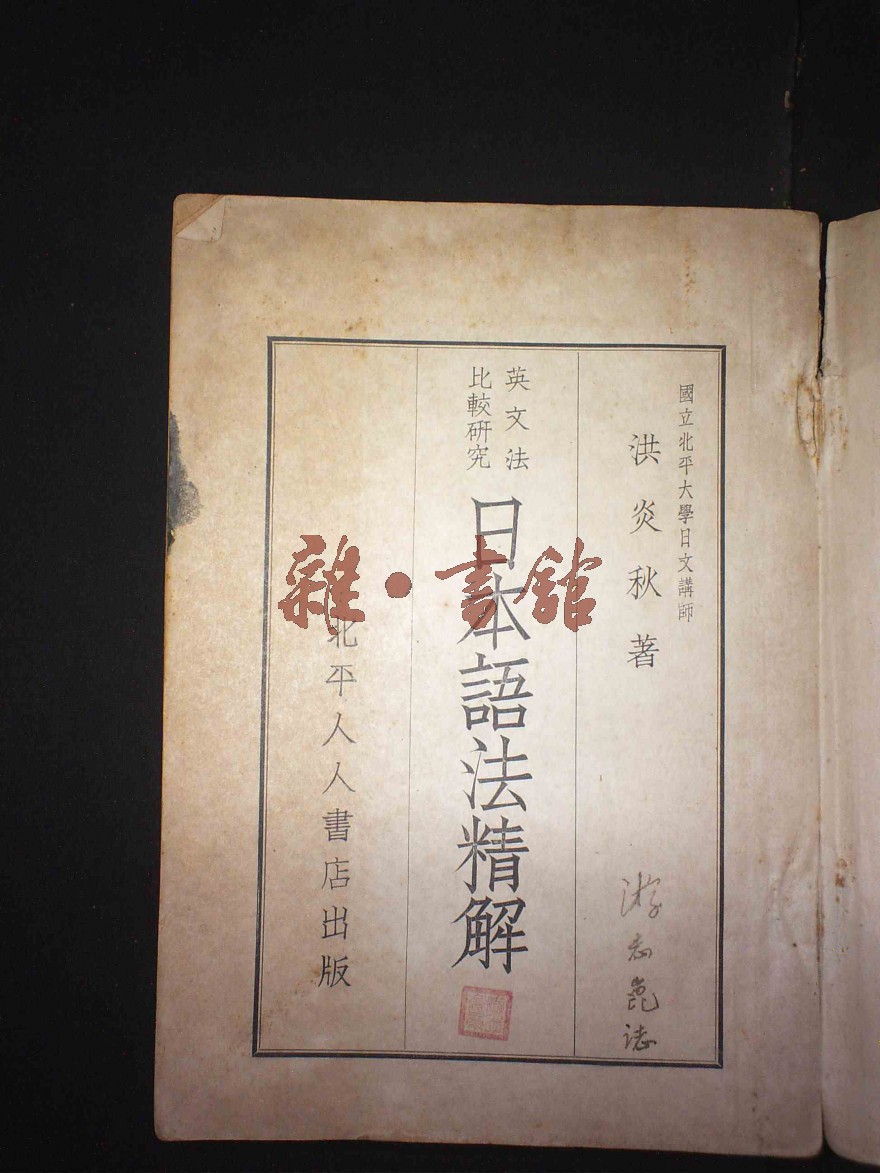 國立北平大學日文講師
洪炎秋著
英文法
比較研究
日本語法精解
北平人人書店出版
雜·書館